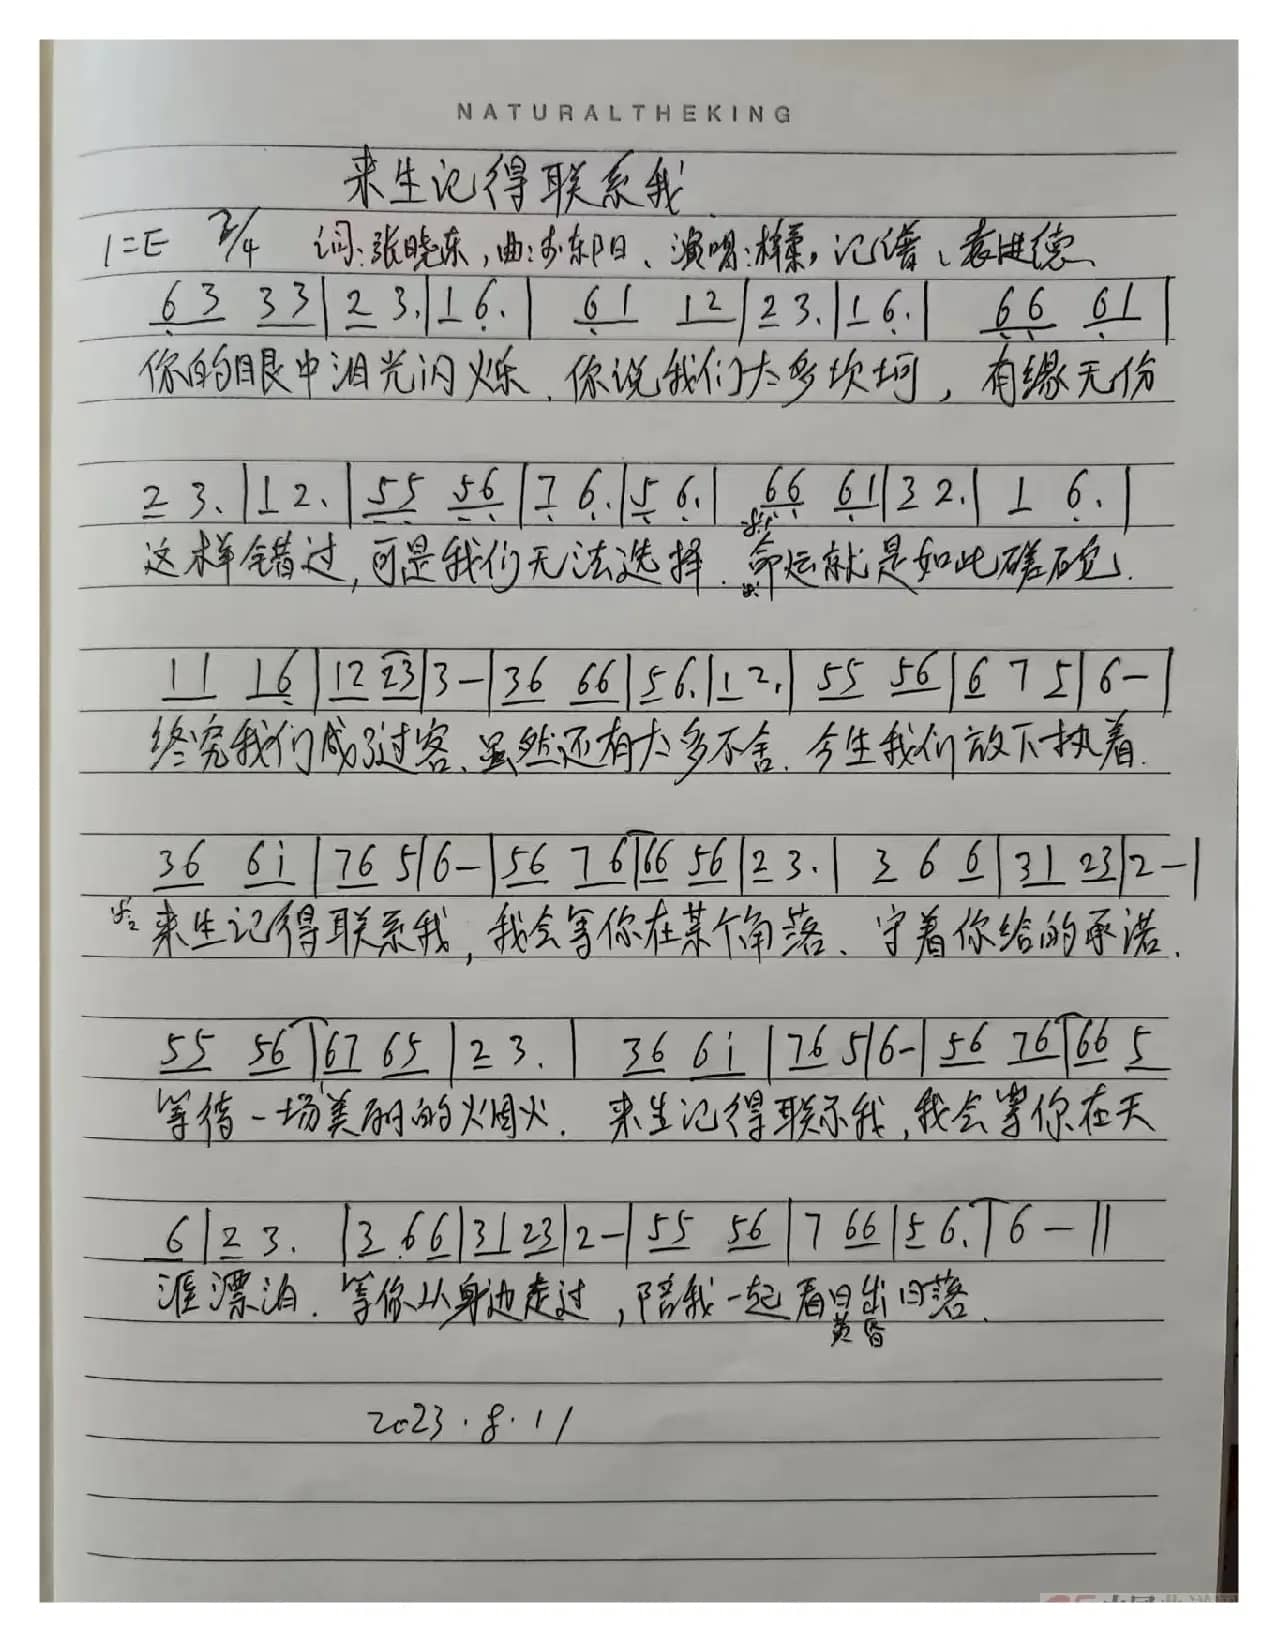 NATURALTHEKING
来生记得联系我
1=E 2/4 词:张晓东,曲:李东阳、演唱:样菓,记谱、袁进德
63 33|2 3.|1 6.| 61 12|2 3.|1 6.| 66 61|
你的眼中泪光闪烁、你说我们太多坎坷,有缘无份
2 3.|1 2.|55 56|7 6.|5 6.| 66 61|3 2.|1 6.|
这样错过,可是我们无法选择.命运就是如此磋砣.
11 16|12 23|3-|36 66|5 6.|1 2.|55 56|6 7 5|6-|
终究我们成了过客、虽然还有太多不舍.今生我们放下执着.
36 6i|76 5|6-|56 76|66 56|2 3.|3 6 6|31 23|2-|
来生记得联系我,我会等你在某个角落、守着你给的承诺.
55 56|67 65|2 3.|36 6i|76 5|6-|56 76|66 5
等待一场美丽的火烟火.来生记得联系我,我会等你在天
6|2 3.|3 66|31 23|2-|55 56|7 66|5 6.|6-||
涯漂泊.等你从身边走过,陪我一起看日出日落.
黄昏
2023.8.11